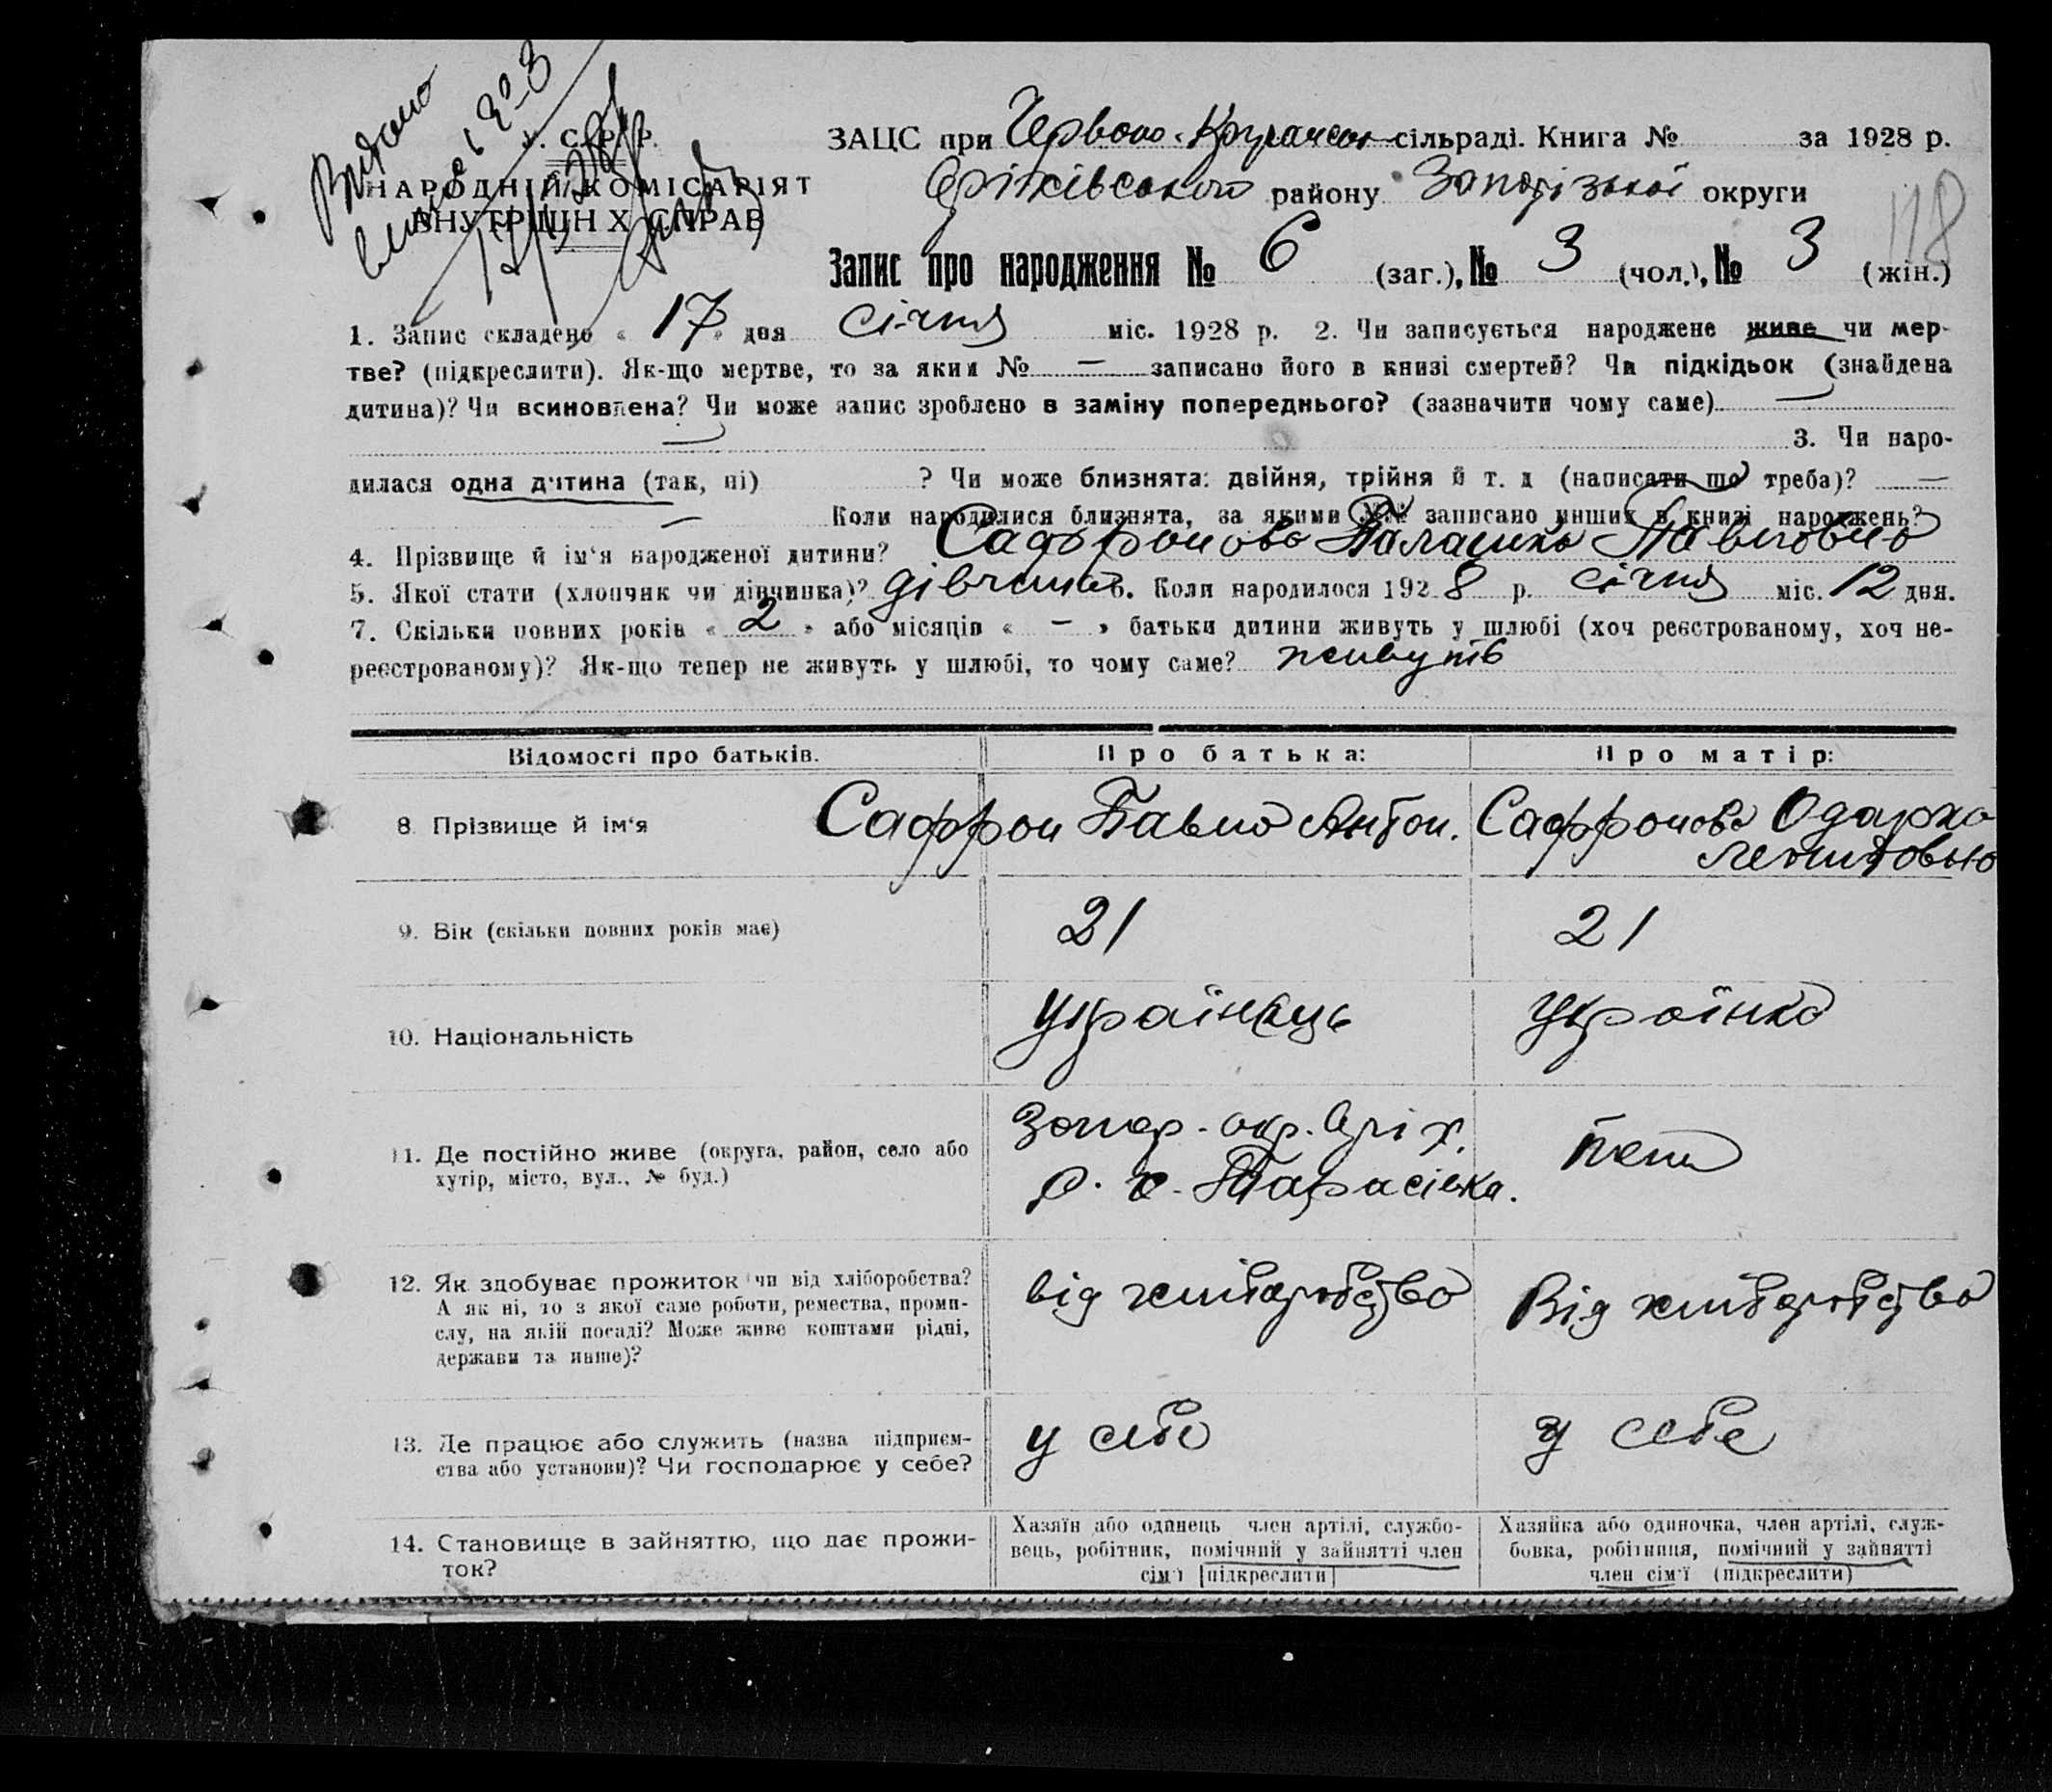 Видано
У. С. Р. Р.
НАРОДНІЙ КОМІСАРІЯТ
ВНУТРІШН Х СПРАВ
ЗАЦС при Червоно-сільраді. Книга № за 1928 р.
Оріхівського району Запорізької округи
118
Запис про народження № 6 (заг.), № 3 (чол.), № 3 (жін.)
1. Запис складено « 17 » дня січня міс. 1928 р. 2. Чи записується народжене живе чи мер-
тве? (підкреслити). Як-що мертве, то за яким № — записано його в книзі смертей? Чи підкідьок (знайдена
дитина)? Чи всиновлена? Чи може запис зроблено в заміну попереднього? (зазначити чому саме) —
— 3. Чи наро-
дилася одна дитина (так, ні) ? Чи може близнята: двійня, трійня й т. д (написати що треба)? —
— Коли народилися близнята, за якими №№ записано инших в книзі народжень?
4. Прізвище й ім‘я народженої дитини? Саффронова Палашка Павловна
5. Якої стати (хлопчик чи дівчинка)? дівчина 6. Коли народилося 1928 р. січня міс. 12 дня.
7. Скільки повних років « 2 » або місяців « — » батьки дитини живуть у шлюбі (хоч реєстрованому, хоч не-
реєстрованому)? Як-що тепер не живуть у шлюбі, то чому саме? живуть
Відомості про батьків. Про батька: Про матір:
8 Прізвище й ім‘я Саффрон Павло Антон. Саффронова Одарка
Леонтовна
9. Вік (скільки повних років має) 21 21
10. Національність Українець Українка
11. Де постійно живе (округа, район, село або
хутір, місто, вул., № буд.)
Запор. окр. Оріх.
р. с. Тарасівка.
12. Як здобуває прожиток чи від хліборобства?
А як ні, то з якої саме роботи, ремества, проми-
слу, на якій посаді? Може живе коштами рідні,
держави та инше)?
від хліборобства Від хліборобства
13. Де працює або служить (назва підприєм-
ства або установи)? Чи господарює у себе?
у себе у себе
14. Становище в зайняттю, що дає прожи-
ток?
Хазяїн або одинець член артілі, службо-
вець, робітник, помічний у зайнятті член
сім‘ї [підкреслити]
Хазяйка або одиночка, член артілі, служ-
бовка, робітниця, помічний у зайнятті
член сім‘ї (підкреслити)